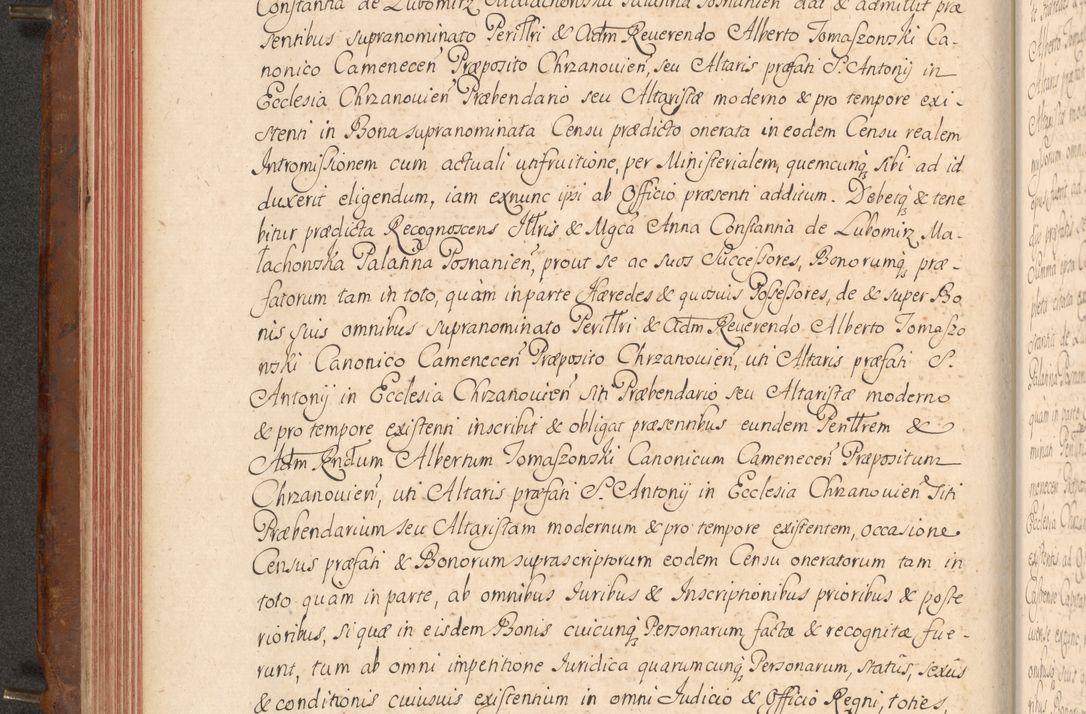 Constantia de Lubomirz Małachowska Palatina Posnanien dat & admittit præ
sentibus supranominato Perillri & Adm Reuerendo Alberto Tomaszowski Ca-
nonico Camenecen̄ Præposito Chrzanouien̄, seu Altaris præfati S. Antonij in
Ecclesia Chrzanouien̄ Præbendario seu Altaristæ moderno & pro tempore exi-
stenti in Bona supranominata Censu prædicto onerata in eodem Censu realem
Intromissionem cum actuali usufruitione, per Ministerialem, quemcunqꝫ sibi ad id
duxerit eligendum, iam exnunc ipsi ab Officio præsenti additum. Debetqꝫ & tene
bitur prædicta Recognoscens Illris & Mgca Anna Constantia de Lubomirz Ma-
łachowska Palatina Posnanien̄, prout se ac suos Successores, Bonorumqꝫ præ-
fatorum tam in toto, quàm in parte Hæredes & quosuis Possessores, de & super Bo
nis suis omnibus supranominato Perillri & Adm Reuerendo Alberto Tomaszo
wski Canonico Camenecen̄ Præposito Chrzanouien̄, uti Altaris præfati S.
Antonij in Ecclesia Chrzanouien̄ siti Præbendario seu Altaristæ moderno
& pro tempore existenti inscribit & obligat præsentibus eundem Perilltrem &
Adm Rndum Albertum Tomaszowski Canonicum Camenecen̄ Præpositum
Chrzanouien̄, uti Altaris præfati S. Antonij in Ecclesia Chrzanouien̄ Siti
Præbendarium seu Altaristam modernum & pro tempore existentem, occasione
Census præfati & Bonorum suprascriptorum eodem Censu oneratorum tam in
toto quam in parte, ab omnibus Iuribus & Inscriptionibus prioribus & poste
rioribus, si quæ in eisdem Bonis cuicunqꝫ Personarum, factæ & recognitæ fue-
runt, tum ab omni impetitione Iuridica quarumcunqꝫ Personarum, statûs, sexûs
& conditionis cuiusuis existentium in omni Iudicio & Officio Regni, toties,